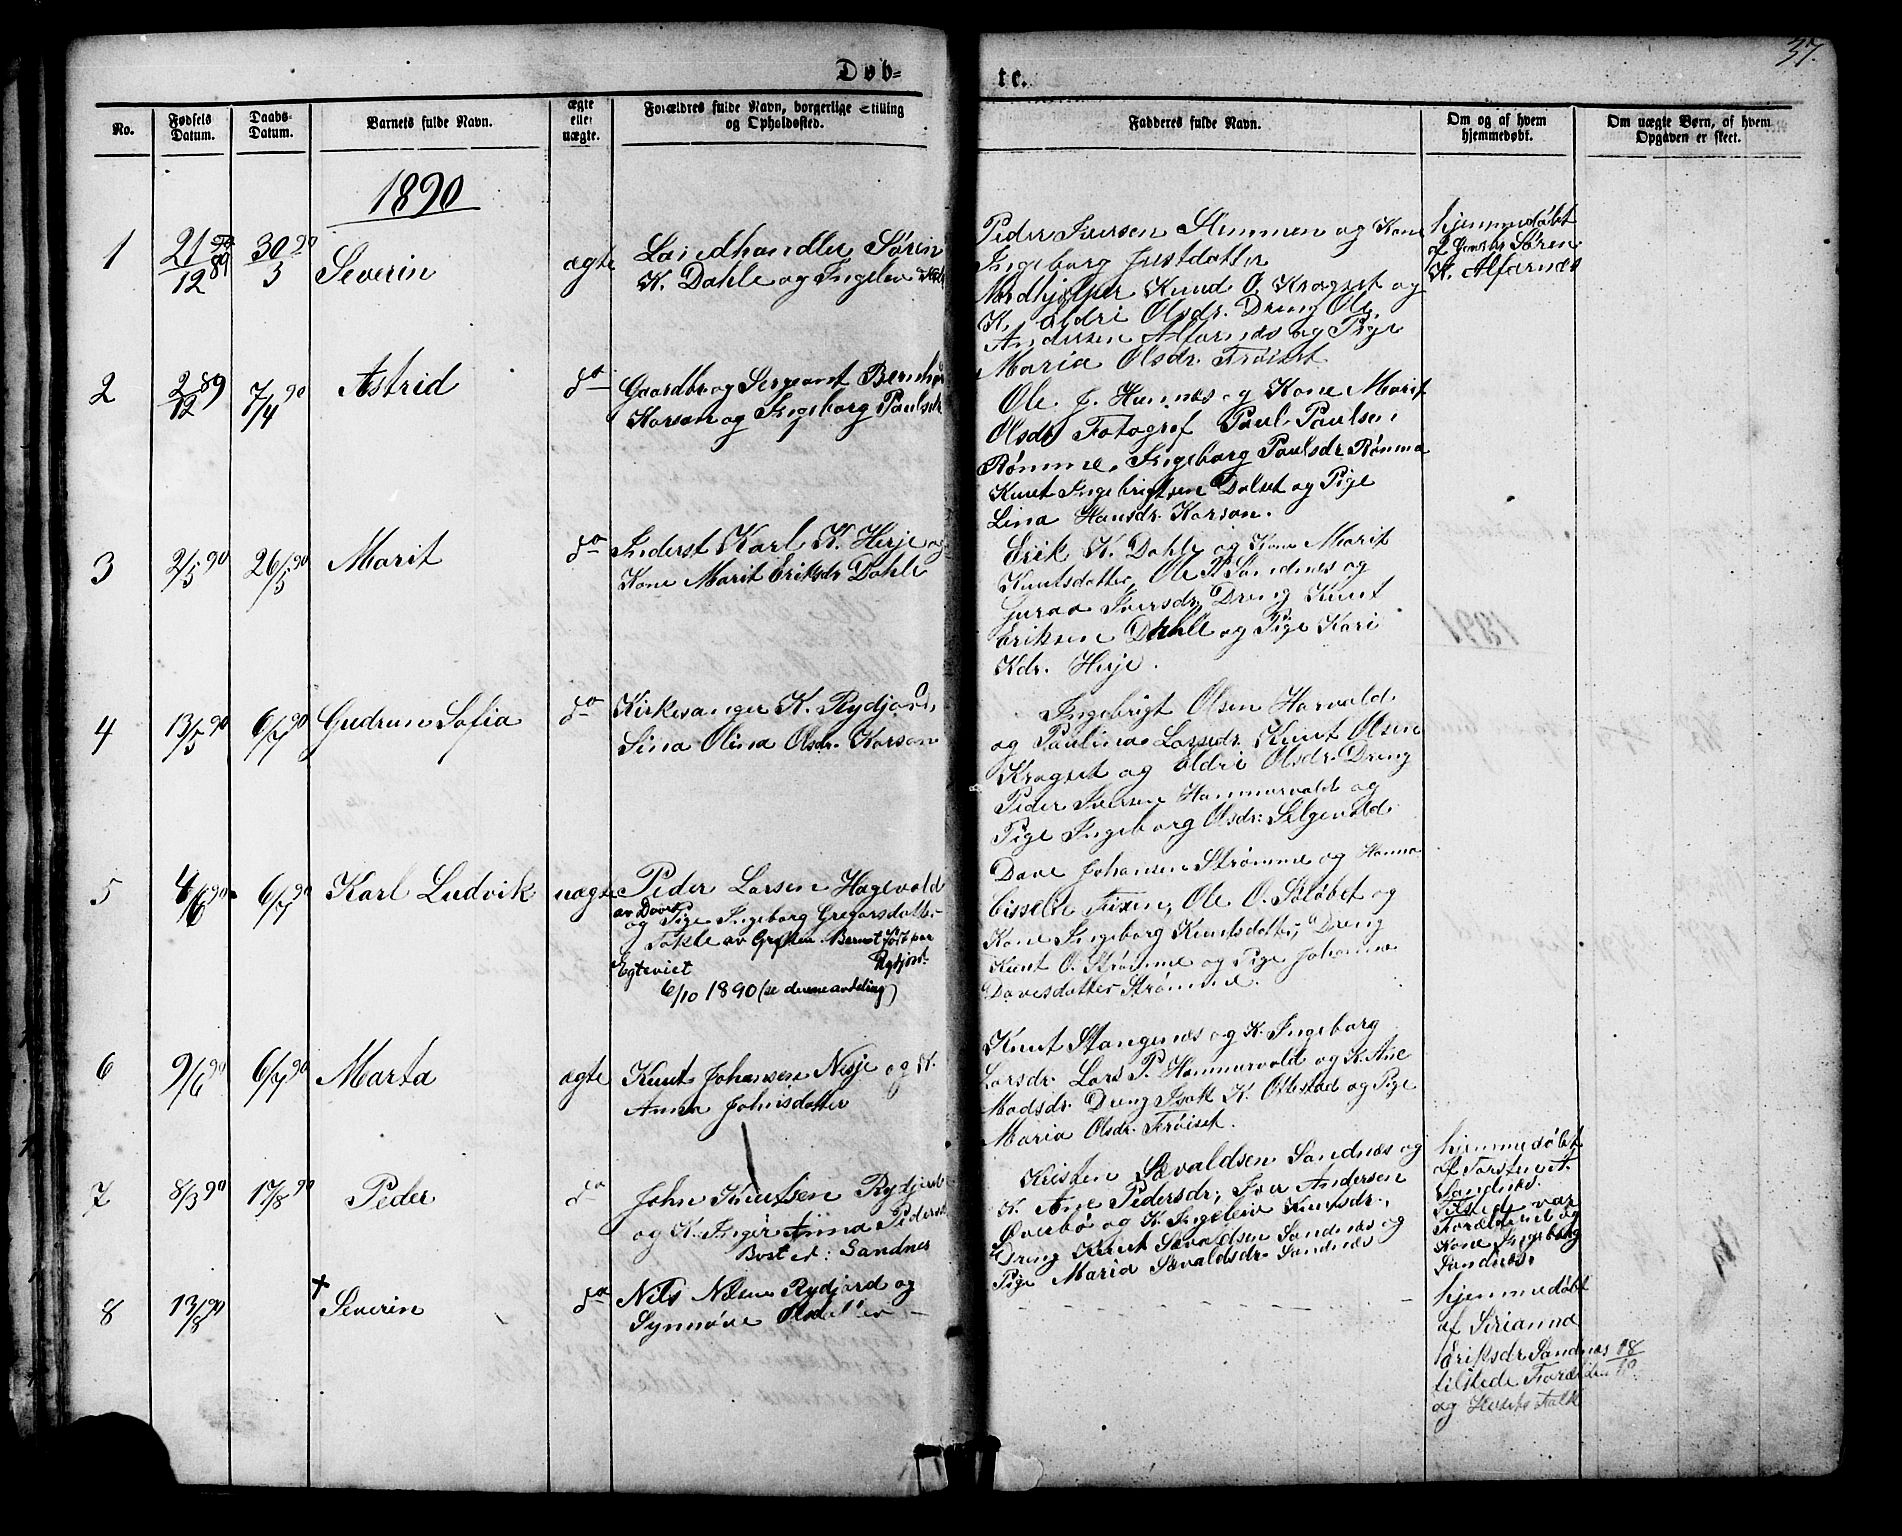 37.
Døb=
te.
No.
Fødsels
Datum.
Daabs-
Datum.
Barnets fulde Navn.
ægte
eller
uægte.
Forældres fulde Navn, borgerlige Stilling
og Opholdssted.
Fadderes fulde Navn.
Om og af hvem
hjemmedøbt.
Om uægte Børn, af hvem
Opgaven er skeet.
1890
1
21/12 89
30/3 90
Severin
ægte
Landhandler Søren
K. Dahle og Ingelev
Peder Iversen Stemmen og Kone
Ingeborg Justdatter
Nordhjelper Knud O. Kragset og
K. Eldri Olsdr. Dreng Ole
Andersen Alfarnes og Pige
Maria Olsdr. Frøiset
hjemmedøbt
af Gaardbr. Søren
K. Alfarnes
2
2/12 89
7/4 90
Astrid
do
Gaardbr og Sergeant Bernh
Korsan og Ingeborg Paulsdr
Ole J. Hunnes og Kone Marit
Olsdr. Fotograf Paul Paulsen
Rømme, Ingeborg Paulsdr. Rømma
Knut Ingebrigtsen Dalset og Pige
Lina Hansdr. Korsan.
3
2/5 90
26/5 90
Marit
do
Inderst Karl K. Herje og
Kone Marit Eriksdr Dahle
Erik K. Dahle og Kone Marit
Knutsdatter, Ole P. Sandnes og
Guroa Iversdr, Dreng Knut
Eriksen Dahle og Pige Kari
Kdr. Herje.
4
13/5 90
6/7 90
Gudrun Sofia
do
Kirkesanger K. Rydjord,
Sina Olina Olsdr. Korsan
Ingebrigt Olsen Harvald
og Paulina Larsdr. Knut Olsen
Kragset og Eldri Olsdr. Dreng
Peder Iversen Hammervold og
Pige Ingeborg Olsdr: Selgevold
5
4/6 90
6/7 90
Karl Ludvik
uægte
Peder Larsen Hagevold
av Davet
og Pige Ingeborg Gregorsdatter
Sokle av Grytten. Barnet født paa
Egteviet Rydjord.
6/10 1890 (se denne avdeling)
Dave Johansen Strømme og Hanna
Gisseln Fixen, Ole O. Soløbet og
Kone Ingeborg Knutsdatter, Dreng
Knut O. Strømme og Pige Johanna
Davesdatter Strømme.
6
9/6 90
6/7 90
Marta
ægte
Knut Johansen Nesje og K.
Anna Johnsdatter
Knut Stangenes og K. Ingeborg
Larsdr. Lars P. Hammervold og K. Ane
Madsdr. Dreng Isak K. Olbstad og Pige
Maria Olsdr. Frøiset.
7
8/3 90
17/8 90
Peder
do
John Knutsen Rydjord
og K. Inger Anna Pedersd
Bosted: Sandnes
Kristen Sævaldsen Sandnes og
K. Ane Pedersdr; Iver Andersen
Øverbø og K. Ingeleiv Knutsdr.,
Dreng Knut Sævaldsen Sandnes og
Pige Maria Sævaldsdr. Sandnes
hjemmedøbt
af Torsten A.
Sandnes.
Tilsted var
Forældrene og
Kone Ingeborg
Sandnes.
8
13/8 90
Severin
do
Nils Nilsen Rydjord og
Synnøve Olsdatter
hjemmedøbt
af Serianna
Eriksdr Sandnes 18/10
tilstede Forældrene
og